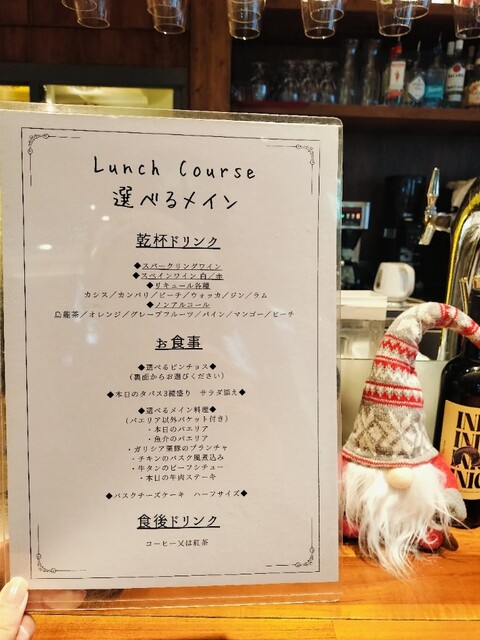 Lunch Course
選べるメイン
乾杯ドリンク
◆スパークリングワイン
◆スペインワイン 白／赤
◆リキュール各種
カシス／カンパリ／ピーチ／ウォッカ／ジン／ラム
◆ノンアルコール
烏龍茶／オレンジ／グレープフルーツ／パイン／マンゴー／ピーチ
お食事
◆選べるピンチョス◆
(裏面からお選びください)
◆本日のタパス3種盛り サラダ添え◆
◆選べるメイン料理◆
(パエリア以外バケット付き)
・本日のパエリア
・魚介のパエリア
・ガリシア栗豚のプランチャ
・チキンのバスク風煮込み
・牛タンのビーフシチュー
・本日の牛肉ステーキ
◆バスクチーズケーキ ハーフサイズ◆
食後ドリンク
コーヒー又は紅茶